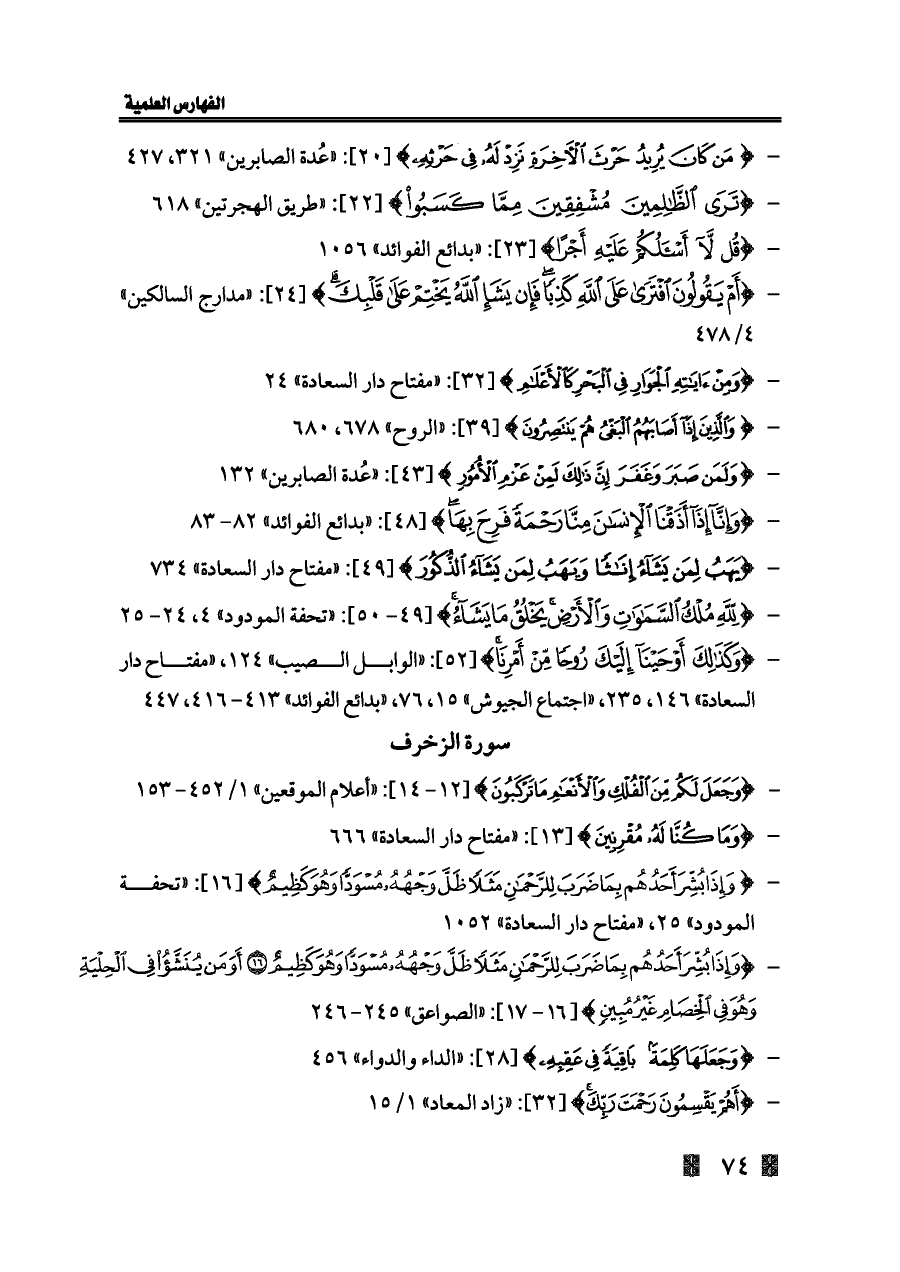 الفهارس العلمية
- ﴿مَن كَانَ يُرِيدُ حَرْثَ ٱلْأَخِرَةِ نَزِدْ لَهُۥ فِى حَرْثِهِۦ﴾ [٢٠]: «عُدة الصابرين» ٣٢١، ٤٢٧
- ﴿تَرَى ٱلظَّٰلِمِينَ مُشْفِقِينَ مِمَّا كَسَبُواْ﴾ [٢٢]: «طريق الهجرتين» ٦١٨
- ﴿قُل لَّآ أَسْـَٔلُكُمْ عَلَيْهِ أَجْرًا﴾ [٢٣]: «بدائع الفوائد» ١٠٥٦
- ﴿أَمْ يَقُولُونَ ٱفْتَرَىٰ عَلَى ٱللَّهِ كَذِبًاۖ فَإِن يَشَإِ ٱللَّهُ يَخْتِمْ عَلَىٰ قَلْبِكَۗ﴾ [٢٤]: «مدارج السالكين»
٤/ ٤٧٨
- ﴿وَمِنْ ءَايَٰتِهِ ٱلْجَوَارِ فِى ٱلْبَحْرِ كَٱلْأَعْلَٰمِ﴾ [٣٢]: «مفتاح دار السعادة» ٢٤
- ﴿وَٱلَّذِينَ إِذَآ أَصَابَهُمُ ٱلْبَغْىُ هُمْ يَنتَصِرُونَ﴾ [٣٩]: «الروح» ٦٧٨، ٦٨٠
- ﴿وَلَمَن صَبَرَ وَغَفَرَ إِنَّ ذَٰلِكَ لَمِنْ عَزْمِ ٱلْأُمُورِ﴾ [٤٣]: «عُدة الصابرين» ١٣٢
- ﴿وَإِنَّآ إِذَآ أَذَقْنَا ٱلْإِنسَٰنَ مِنَّا رَحْمَةً فَرِحَ بِهَاۖ﴾ [٤٨]: «بدائع الفوائد» ٨٢- ٨٣
- ﴿يَهَبُ لِمَن يَشَآءُ إِنَٰثًا وَيَهَبُ لِمَن يَشَآءُ ٱلذُّكُورَ﴾ [٤٩]: «مفتاح دار السعادة» ٧٣٤
- ﴿لِلَّهِ مُلْكُ ٱلسَّمَٰوَٰتِ وَٱلْأَرْضِۚ يَخْلُقُ مَا يَشَآءُۚ﴾ [٤٩- ٥٠]: «تحفة المودود» ٤، ٢٤- ٢٥
- ﴿وَكَذَٰلِكَ أَوْحَيْنَآ إِلَيْكَ رُوحًا مِّنْ أَمْرِنَاۚ﴾ [٥٢]: «الوابـل الـصيب» ١٢٤، «مفتـاح دار
السعادة» ١٤٦، ٢٣٥، «اجتماع الجيوش» ١٥، ٧٦، «بدائع الفوائد» ٤١٣- ٤١٦، ٤٤٧
سورة الزخرف
- ﴿وَجَعَلَ لَكُم مِّنَ ٱلْفُلْكِ وَٱلْأَنْعَٰمِ مَا تَرْكَبُونَ﴾ [١٢- ١٤]: «أعلام الموقعين» ١/ ٤٥٢- ١٥٣
- ﴿وَمَا كُنَّا لَهُۥ مُقْرِنِينَ﴾ [١٣]: «مفتاح دار السعادة» ٦٦٦
- ﴿وَإِذَا بُشِّرَ أَحَدُهُم بِمَا ضَرَبَ لِلرَّحْمَٰنِ مَثَلًا ظَلَّ وَجْهُهُۥ مُسْوَدًّا وَهُوَ كَظِيمٌ﴾ [١٦]: «تحفـة
المودود» ٢٥، «مفتاح دار السعادة» ١٠٥٢
- ﴿وَإِذَا بُشِّرَ أَحَدُهُم بِمَا ضَرَبَ لِلرَّحْمَٰنِ مَثَلًا ظَلَّ وَجْهُهُۥ مُسْوَدًّا وَهُوَ كَظِيمٌ ١٦ أَوَمَن يُنَشَّؤُاْ فِى ٱلْحِلْيَةِ
وَهُوَ فِى ٱلْخِصَامِ غَيْرُ مُبِينٍ﴾ [١٦- ١٧]: «الصواعق» ٢٤٥- ٢٤٦
- ﴿وَجَعَلَهَا كَلِمَةًۢ بَاقِيَةً فِى عَقِبِهِۦ﴾ [٢٨]: «الداء والدواء» ٤٥٦
- ﴿أَهُمْ يَقْسِمُونَ رَحْمَتَ رَبِّكَۚ﴾ [٣٢]: «زاد المعاد» ١/ ١٥
٧٤